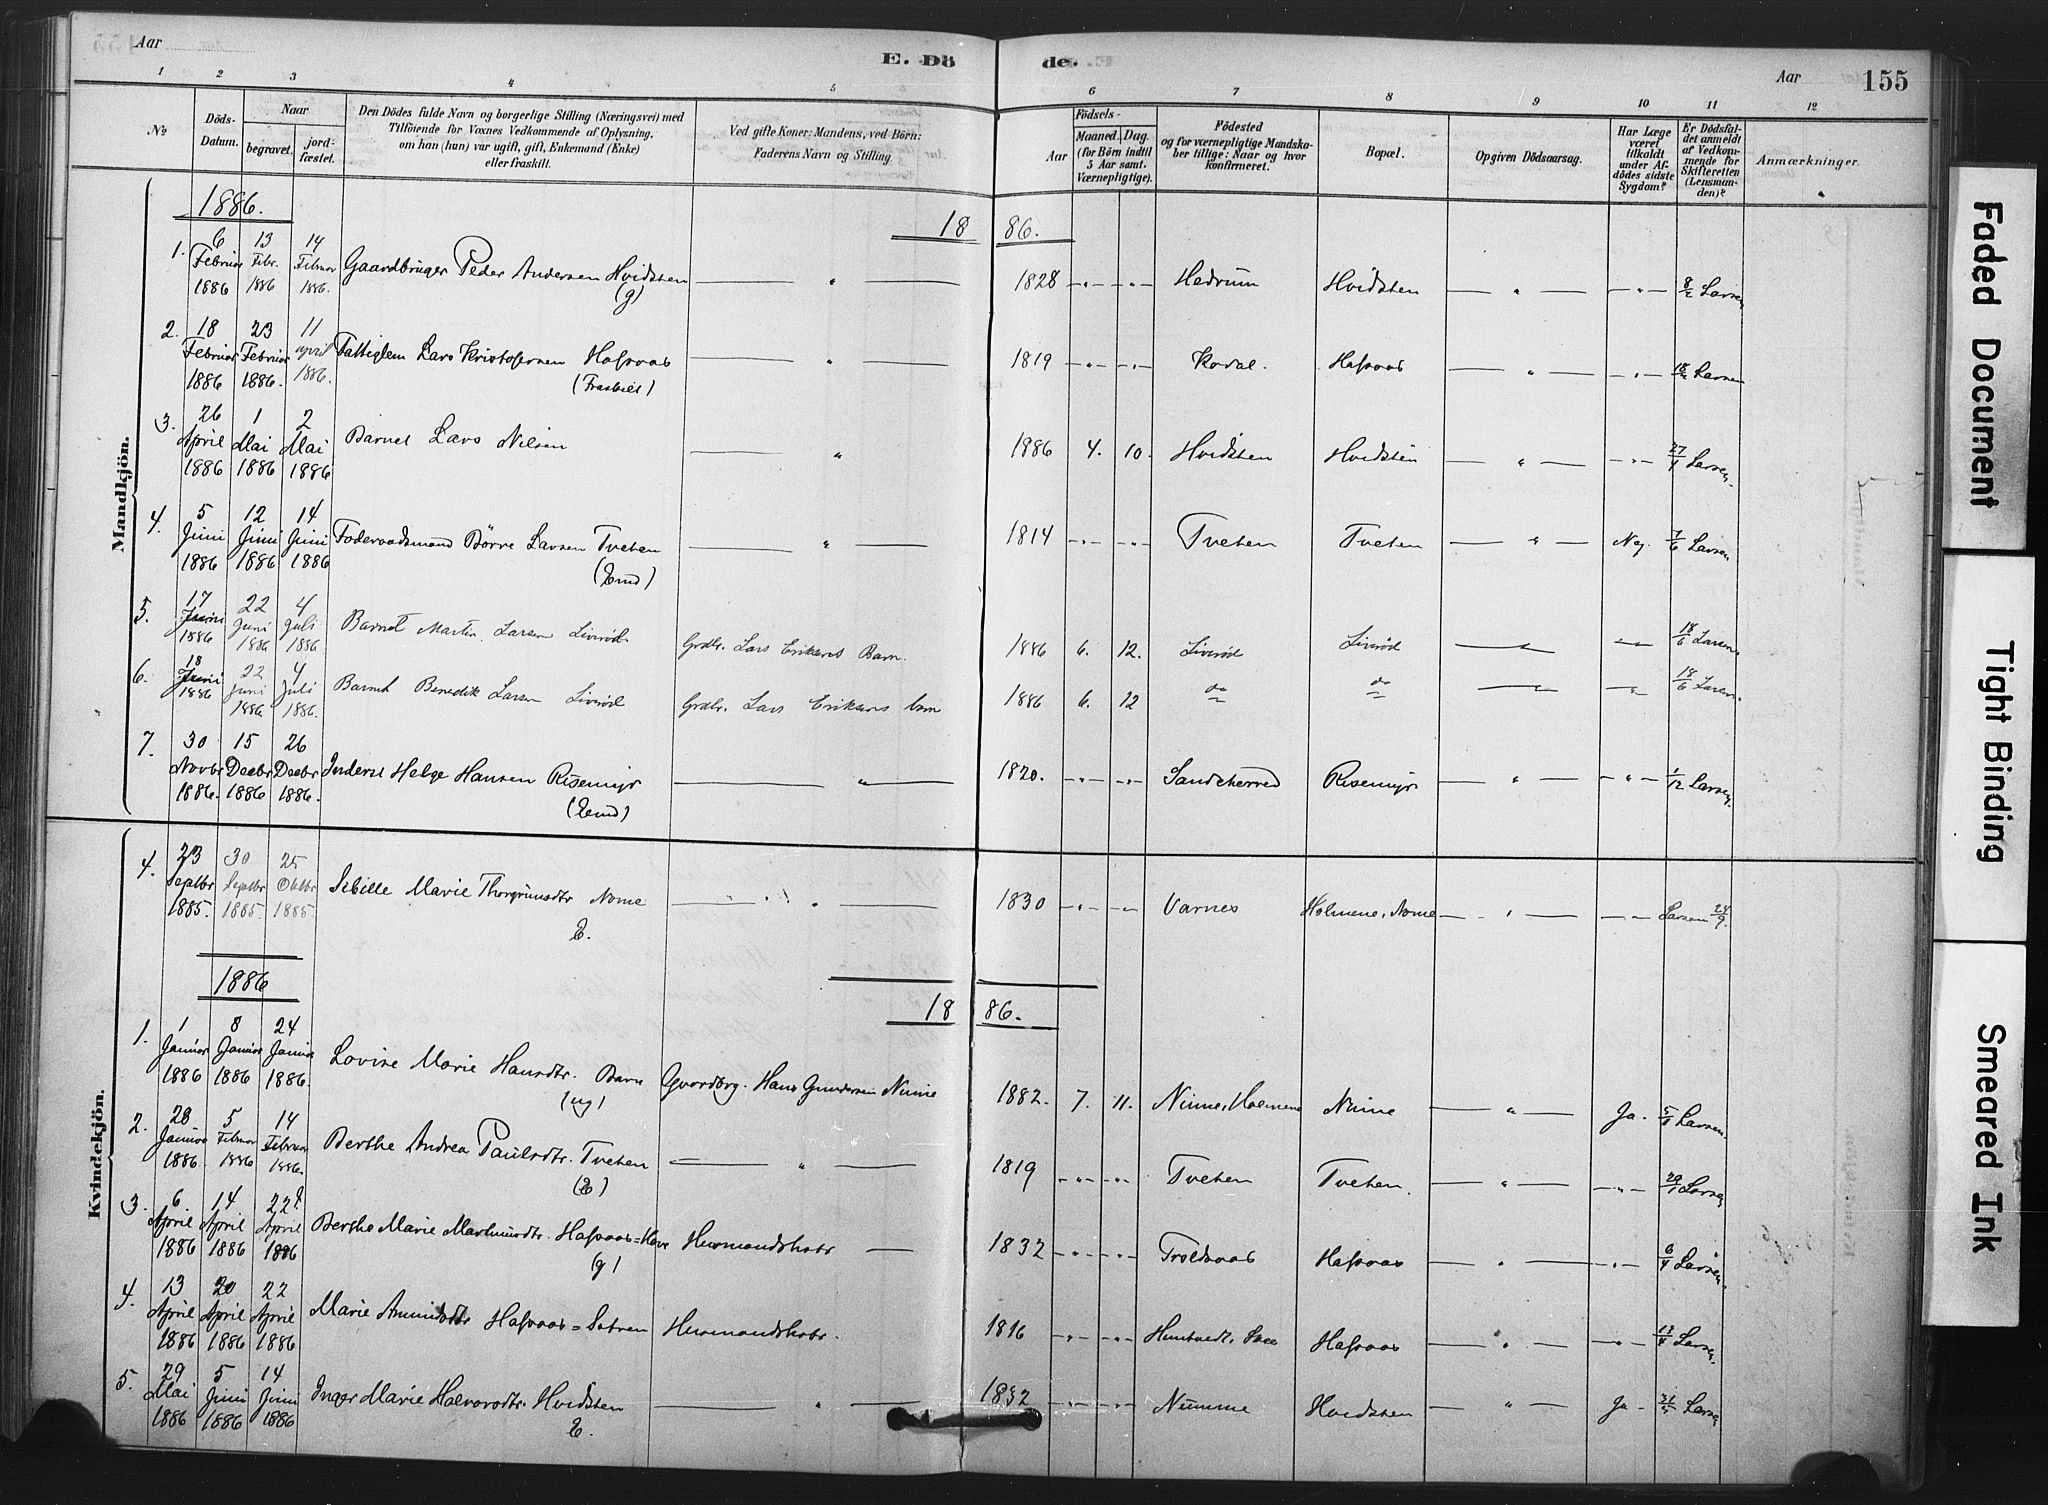 Aar
E. Dö
de.
Aar
155
1 2 3 4 5 6 7 8 9 10 11 12
№
Döds-
Datum.
Naar
begravet.
jord-
fæstet.
Den Dödes fulde Navn og borgerlige Stilling (Næringsvei) med
Tilföiende for Voxnes Vedkommende af Oplysning,
om han (hun) var ugift, gift, Enkemand (Enke)
eller fraskilt.
Ved gifte Koner: Mandens, ved Börn:
Faderens Navn og Stilling.
Födsels-
Aar
Maaned.
Dag.
(for Börn indtil
5 Aar samt.
Værnepligtige).
Födested
og for værnepligtige Mandska-
ber tillige: Naar og hvor
konfirmeret.
Bopæl.
Opgiven Dödsaarsag.
Har Læge
været
tilkaldt
under Af-
dödes sidste
Sygdom?
Er Dödsfal-
det anmeldt
af Vedkom-
mende for
Skifteretten
(Lensman-
den)?
Anmærkninger.
Mandkjön.
1886.
18 86.
1. 6 Februar 1886 13 Febr. 1886 14 Februar 1886. Gaardbruger Peder Andersen Hvidsten (g) — " — 1828 -"- -"- Hedrum Hvidsten — " — -"- 8/2 Larsen
2. 18 Februar 1886 23 Februar 1886. 11 april 1886. Fattiglem Lars Kristofersen Hafsaas (Fraskilt) — " — 1819 -"- -"- Kodal. Hafsaas — " — -"- 18/2 Larsen
3. 26 April 1886 1 Mai 1886 2 Mai 1886 Barnet Lars Nilsen — " 1886 4. 10. Hvidsten Hvidsten — " — -"- 27/4 Larsen.
4. 5 Juni 1886 12 Juni 1886 14 Juni 1886 Föderaadsmand Börre Larsen Tveten (Emd) — " — 1814 -"- -"- Tveten Tveten — " — Nej. 7/6 Larsen
5. 17 Juni 1886 22 Juni 1886 4 Juli 1886 Barnet Martin Larsen Liverød Grdbr. Lars Eriksens Barn. 1886 6. 12. Liverød Liverød — " — -"- 18/6 Larsen
6. 18 Juni 1886 22 Juni 1886 4 Juli 1886. Barnet Benedik Larsen Liverød Grdbr. Lars Eriksens barn 1886 6. 12 do do — " — -"- 18/6 Larsen.
7. 30 Novbr 1886. 15 Decbr 1886 26 Decbr 1886. Inderst Helge Hansen Risemyr (Emd) — " — 1820. -"- -"- Sandeherred Risemyr — " — -"- 1/12 Larsen.
Kvindekjön.
4. 23 Septbr 1885. 30 Septbr 1885. 25 Oktbr 1885. Sibille Marie Thorgrimsdtr Nome E. — " — 1830 -"- -"- Varnes Holmene, Nome — " — -"- Larsen 24/9.
1886
18 86.
1. 1 Januar 1886 8 Januar 1886 24 Januar 1886. Lovise Marie Hansdtr. Barn (ug) Gaardbrg. Hans Gundersen Nume 1882. 7. 11. Nume, Holmene Nume — " — Ja. 5/1 Larsen.
2. 28 Januar 1886. 5 Februar 1886 14 Februar 1886. Berthe Andrea Paulsdtr. Tveten (E) — " — 1819 -"- -"- Tveten Tveten. — " — -"- 29/1 Larsen
3. 6 April 1886 14 April 1886 22 April 1886 Berthe Marie Mathisdtr. Hafsaas= (g) Husmandskone — 1832 -"- -"- Trolsaas Hafsaas — " — -"- 6/4 Larsen.
4. 13 April 1886 20 April 1886 22 April 1886 Marie Amundsdtr Hafsaas = Husmandskone. 1816 -"- -"- Hafsaas — " — -"- 13/4 Larsen.
5. 29 Mai 1886 5 Juni 1886 14 Juni 1886 Inger Marie Halvorsdtr. Hvidsten E. — " — 1832 -"- -"- Numme Hvidsten — " — Ja - 31/5 Larsen
Faded Document
Tight Binding
Smeared Ink